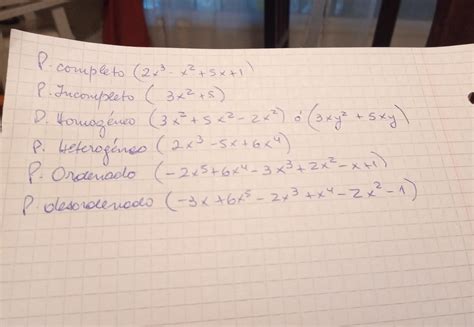 P. completo (2x³ - x² + 5x + 1)
P. Incompleto ( 3x² + 5)
P. Homogéneo (3x² + 5x² - 2x²) ó (3xy² + 5xy)
P. Heterogéneo (2x³ - 5x + 6x⁴)
P. Ordenado (-2x⁵ + 6x⁴ - 3x³ + 2x² - x + 1)
P. desordenado (-3x + 6x⁵ - 2x³ + x⁴ - 2x² - 1)